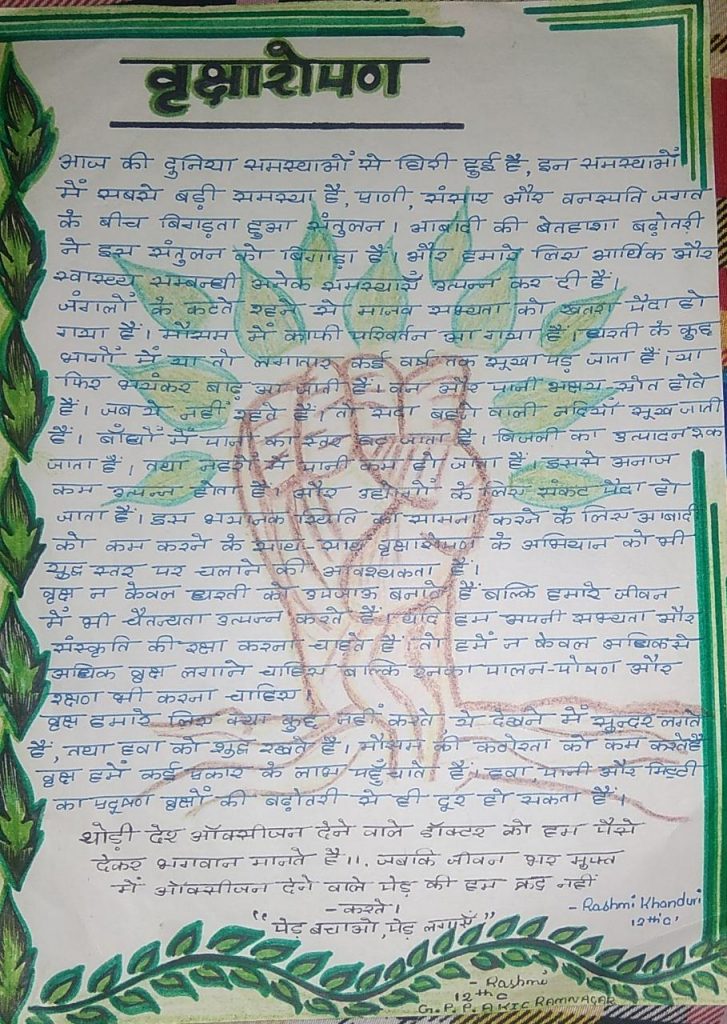 वृक्षारोपण
आज की दुनिया समस्याओं से घिरी हुई है, इन समस्याओं
में सबसे बड़ी समस्या है, प्राणी, संसार और वनस्पति जगत
के बीच बिगड़ता हुआ संतुलन। आबादी की बेतहाशा बढ़ोतरी
ने इस संतुलन को बिगाड़ा है। और हमारे लिए आर्थिक और
स्वास्थ्य सम्बन्धी अनेक समस्याएँ उत्पन्न कर दी हैं।
जंगलों के कटते रहने से मानव सभ्यता को खतरा पैदा हो
गया है। मौसम में काफी परिवर्तन आ गया है। धरती के कुछ
भागों में या तो लगातार कई वर्ष तक सूखा पड़ जाता है। या
फिर भयंकर बाढ़ आ जाती है। वन और पानी अक्षय-स्रोत होते
हैं। जब ये नहीं रहते हैं। तो सदा बहने वाली नदियाँ सूख जाती
हैं। बाँधों में पानी का स्तर घट जाता है। बिजली का उत्पादन रुक
जाता है, तथा नहरों में पानी कम हो जाता है। इससे अनाज
कम उत्पन्न होता है। और उद्योगों के लिए संकट पैदा हो
जाता है। इस भयानक स्थिति का सामना करने के लिए आबादी
को कम करने के साथ-साथ वृक्षारोपण के अभियान को भी
युद्ध स्तर पर चलाने की आवश्यकता है।
वृक्ष न केवल धरती को उपजाऊ बनाते हैं बल्कि हमारे जीवन
में भी चैतन्यता उत्पन्न करते हैं। यदि हम अपनी सभ्यता और
संस्कृति की रक्षा करना चाहते हैं। तो हमें न केवल अधिक से
अधिक वृक्ष लगाने चाहिए बल्कि उनका पालन-पोषण और
रक्षण भी करना चाहिए
वृक्ष हमारे लिए क्या कुछ नहीं करते ये देखने में सुन्दर लगते
हैं, तथा हवा को शुद्ध रखते हैं। मौसम की कठोरता को कम करते हैं
वृक्ष हमें कई प्रकार के लाभ पहुँचाते हैं। हवा, पानी और मिट्टी
का प्रदूषण वृक्षों की बढ़ोतरी से ही दूर हो सकता है।
थोड़ी देर ऑक्सीजन देने वाले डॉक्टर को हम पैसे
देकर भगवान मानते है।।. जबकि जीवन भर मुफ्त
में ऑक्सीजन देने वाले पेड़ की हम क्रद्र नहीं
- करते।
"पेड़ बचाओ, पेड़ लगाएँ"
- Rashmi Khanduri
12th 'C'
- Rashmi
12th C
G.P.P.A KIC RAMNAGAR